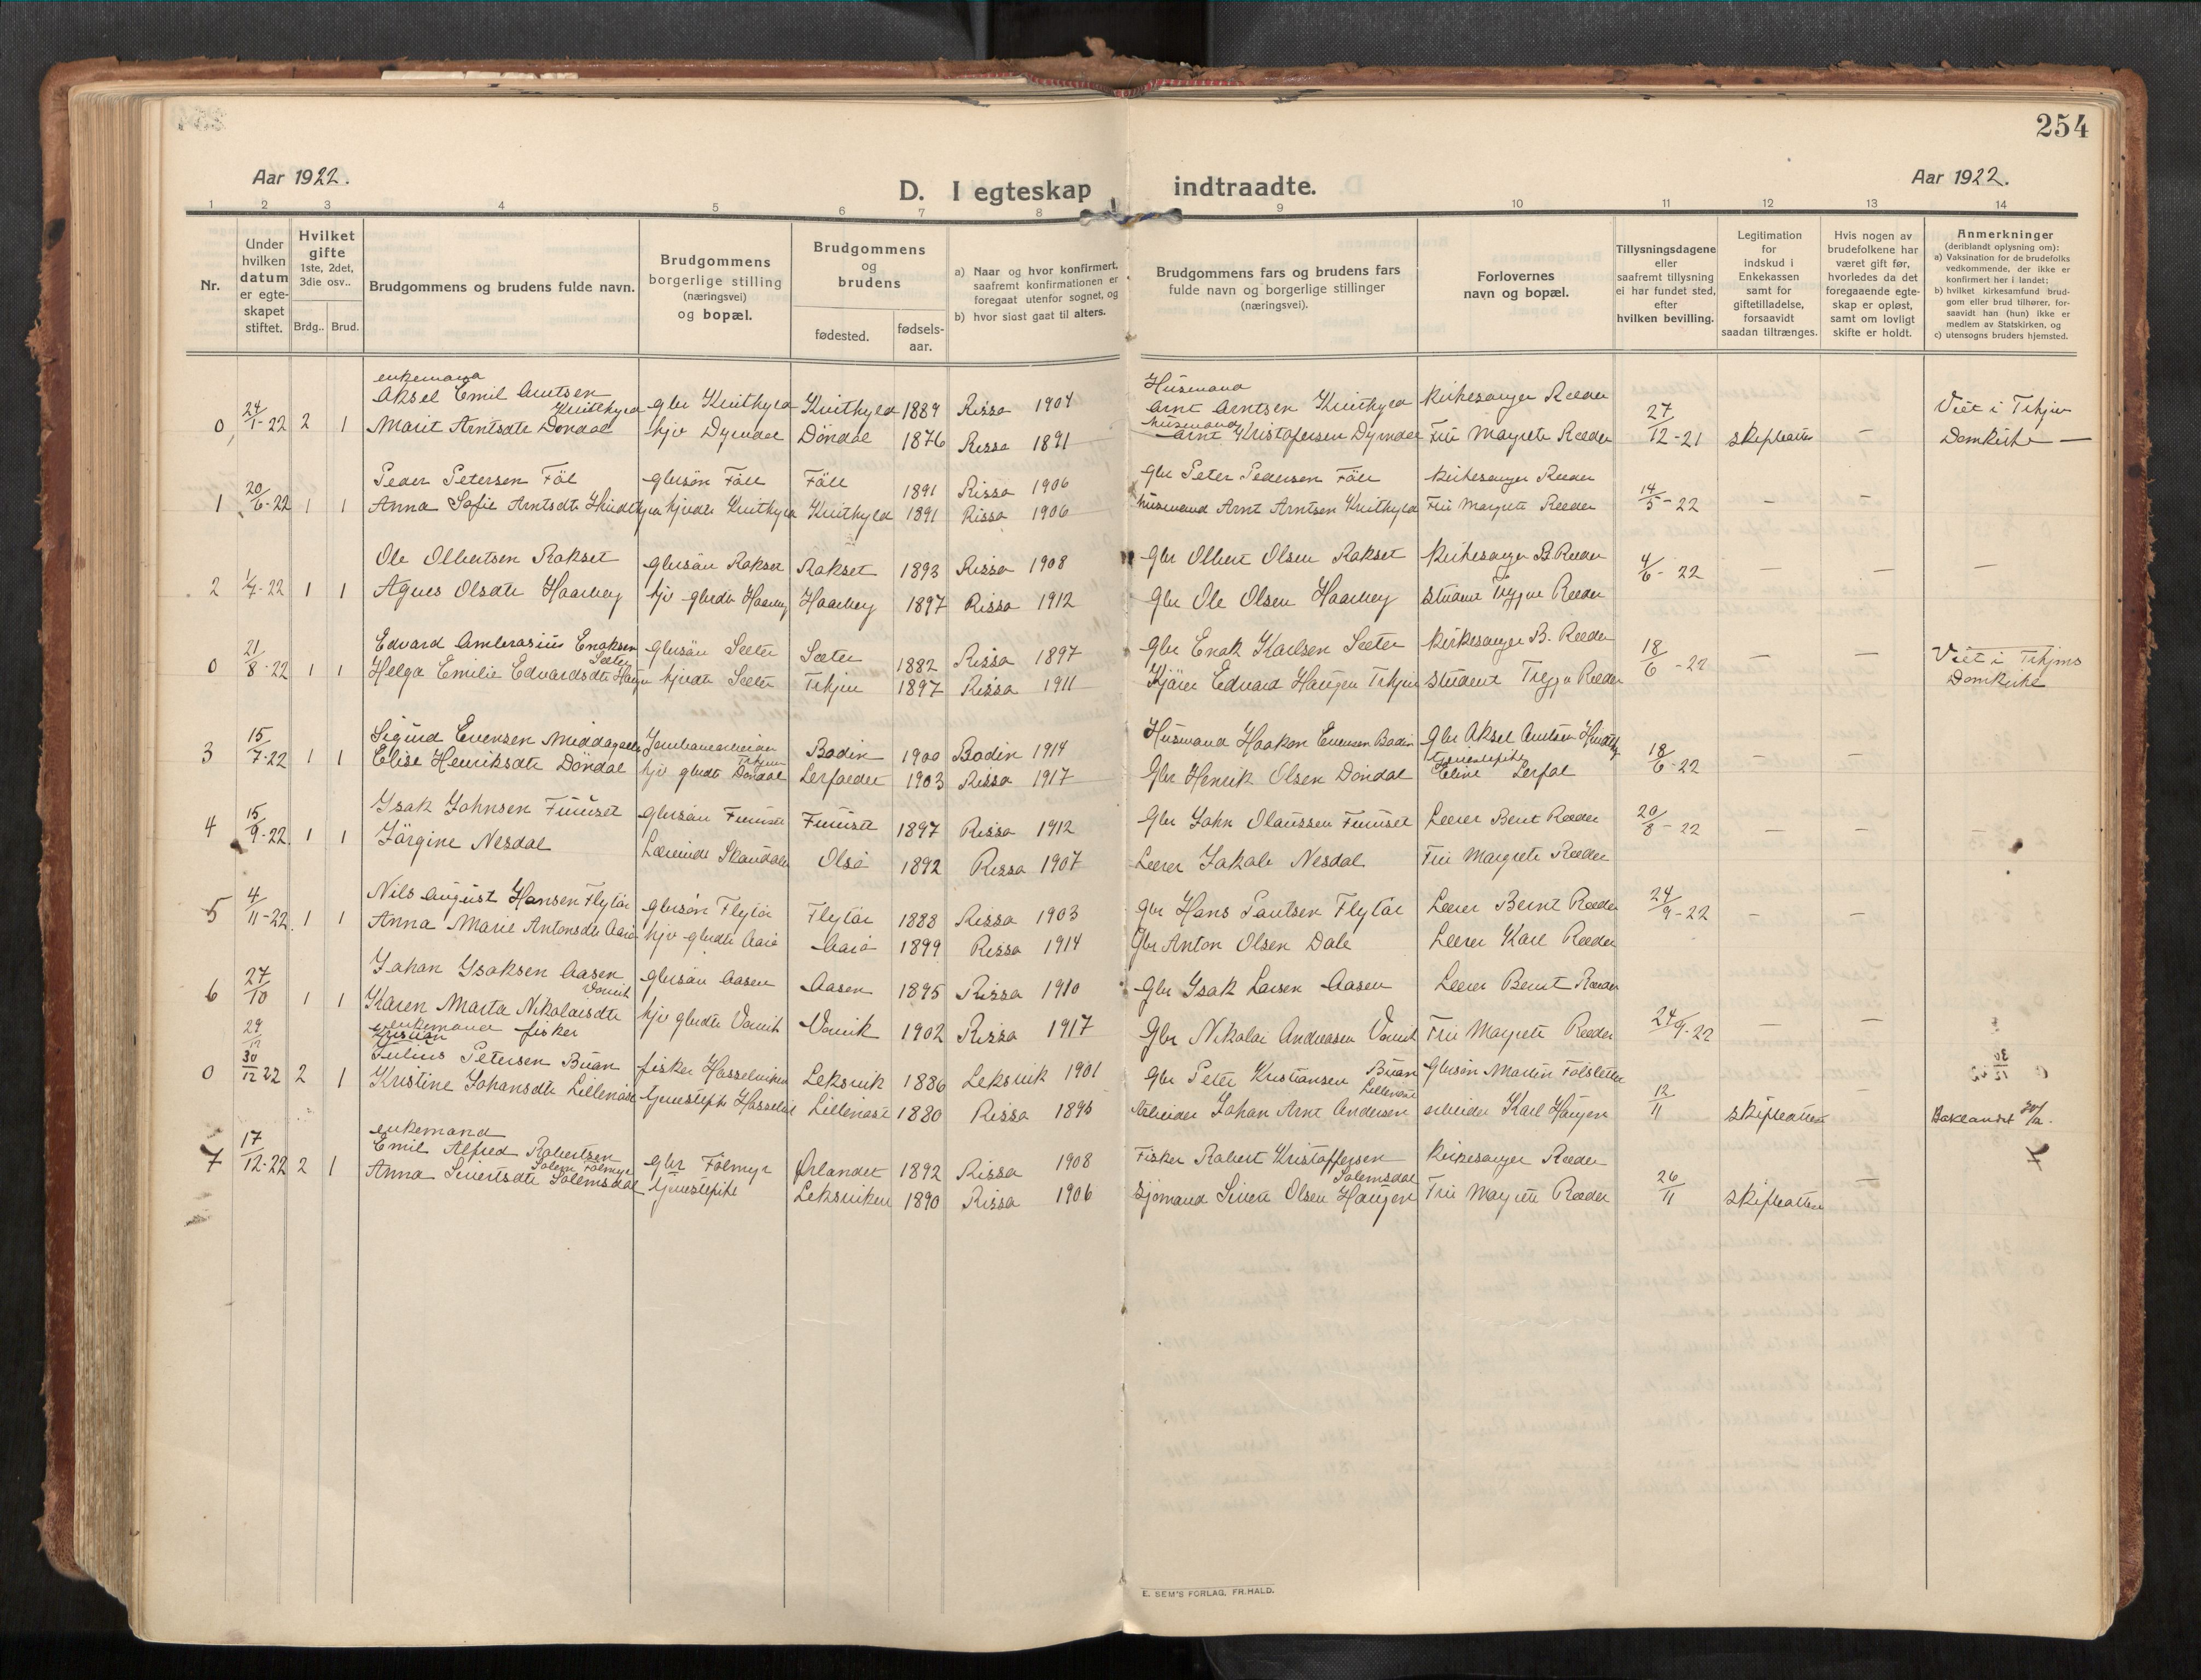 254
Aar 1922.
D. I egteskap indtraadte.
Aar 1922.
1 2 3 4 5 6 7 8 9 10 11 12 13 14
Nr.
Under hvilken datum er egte-skapet stiftet.
Hvilket gifte 1ste, 2det, 3die osv..
Brdg.. Brud.
Brudgommens og brudens fulde navn.
Brudgommens borgerlige stilling (næringsvei) og bopæl.
Brudgommens og brudens
fødested. fødsels-aar.
a) Naar og hvor konfirmert, saafremt konfirmationen er foregaat utenfor sognet, og
b) hvor sidst gaat til alters.
Brudgommens fars og brudens fars fulde navn og borgerlige stillinger (næringsvei).
Forlovernes navn og bopæl.
Tillysningsdagene eller saafremt tillysning ei har fundet sted, efter hvilken bevilling.
Legitimation for indskud i Enkekassen samt for giftetilladelse, forsaavidt saadan tiltrænges.
Hvis nogen av brudefolkene har været gift før, hvorledes da det foregaaende egte-skap er opløst, samt om lovligt skifte er holdt.
Anmerkninger (deriblandt oplysning om):
a) Vaksination for de brudefolks vedkommende, der ikke er konfirmert her i landet;
b) hvilket kirkesamfund brud-gom eller brud tilhører, for-saavidt han (hun) ikke er medlem av Statskirken, og
c) utensogns bruders hjemsted.
enkemand Husmand
Aksel Emil Arntsen Kvithyld gbr Kvithyld Kvithyld 1889 Rissa 1904 Arnt Arntsen Kvithyld Kirkesanger Reeder
0 24/1-22 2 1 Marit Arntsdtr Döndal hjv Dyrndal Döndal 1876 Rissa 1891 husmand Arnt Kristofersen Dyrndal Fru Margrete Reeder 27/12-21 skifteatten — Viet i Trhjm Domkirke —
Peder Petersen Föll gbrsön Föll Föll 1891 Rissa 1906 Gbr Peter Pedersen Föll Kirkesanger Reeder
1 20/6-22 1 1 Anna Sofie Arntsdtr Kvithyld hjvdtr Kvithyld Kvithyld 1891 Rissa 1906 husmand Arnt Arntsen Kvithyld Fru Margrete Reeder 14/5-22 — —
Ole Olbertsen Rokset gbrsön Rokset Rokset 1893 Rissa 1908 Gbr Olbert Olsen Rokset Kirkesanger B Reeder
2 1/7-22 1 1 Agnes Olsdtr Haarberg hjv gbrdtr Haarberg Haarberg 1897 Rissa 1912 Gbr Ole Olsen Haarberg student Trygve Reeder 4/6-22 — — —
Edvard Ambrosius Enoksen Sæter gbrsön Sæter Sæter 1882 Rissa 1897 Gbr Enok Karlsen Sæter Kirkesanger B. Reeder
0 21/8-22 1 1 Helga Emilie Edvardsdtr Haugen hjvdtr Sæter Trhjm 1897 Rissa 1911 Kjörer Edvard Haugen Trhjm student Trygve Reeder 18/6-22 — — Viet i Trhjms Domkirke
Sigurd Evensen Jernbanearbeider Trhjm Bodin 1900 Bodin 1914 Husmand Haakon Evensen Bodin Gbr Aksel Arntsen Kvithyld
3 15/7-22 1 1 Elise Henriksdtr Döndal hjv gbrdtr Döndal 1903 Rissa 1917 Gbr Henrik Olsen Döndal Tjenestepike Eline Lerfal 18/6-22 — —
Isak Johnsen Fuuset gbrsön Fuuset Fuuset 1897 Rissa 1912 Gbr John Olaussen Fuuset Lærer Bernt Reeder
4 15/9-22 1 1 Jörgine Nesdal Olsö 1892 Rissa 1907 Lærer Jakob Nesdal Fru Margrete Reeder 20/8-22 — — —
Nils August Hansen Flytör gbrsön Flytör Flytör 1888 Rissa 1903 Gbr Hans Paulsen Flytör Lærer Bernt Reeder
5 4/11-22 1 1 Anna Marie Antonsdtr Aasö hjv gbrdtr Aasö Aasö 1899 Rissa 1914 Gbr Anton Olsen Dale Lærer Karl Reeder 24/9-22 — —
Johan Isaksen Aasen gbrsön Aasen Aasen 1895 Rissa 1910 Gbr Isak Larsen Aasen Lærer Bernt Reeder
6 27/10 1 1 Karen Marta Nikolaisdtr Vorvik hjv gbrdtr Vorvik Vorvik 1902 Rissa 1917 Gbr Nikolai Andreasen Vorvik Fru Margrete Reeder 24/9-22 — —
enkemand fisker
Julius Petersen Buan fisker Hasselviken Leksvik 1886 Leksvik 1901 Gbr Peter Kristiansen Buan Gbrsön Martin Folsletten
0 30/12 22 2 1 Kristine Johansdtr Lillenäse tjenestepk Lillenäse 1880 Rissa 1895 Arbeider Johan Arnt Andersen Lillenäse arbeider Karl Haugen 12/11 skifteatten — Baklandet 30/12.
enkemand
Emil Alfred Robertsen gbr Folmyr Ørlandet 1892 Rissa 1908 Fisker Robert Kristoffersen Kirkesanger Reeder
7 17/12-22 2 1 Anna Sivertsdtr Solemsdal tjenestepike Leksviken 1890 Rissa 1906 Sjömand Sivert Olsen Haugen Solemsdal Fru Margrete Reeder 26/11 skifteatten — 7
E. SEM'S FORLAG, FR.HALD.